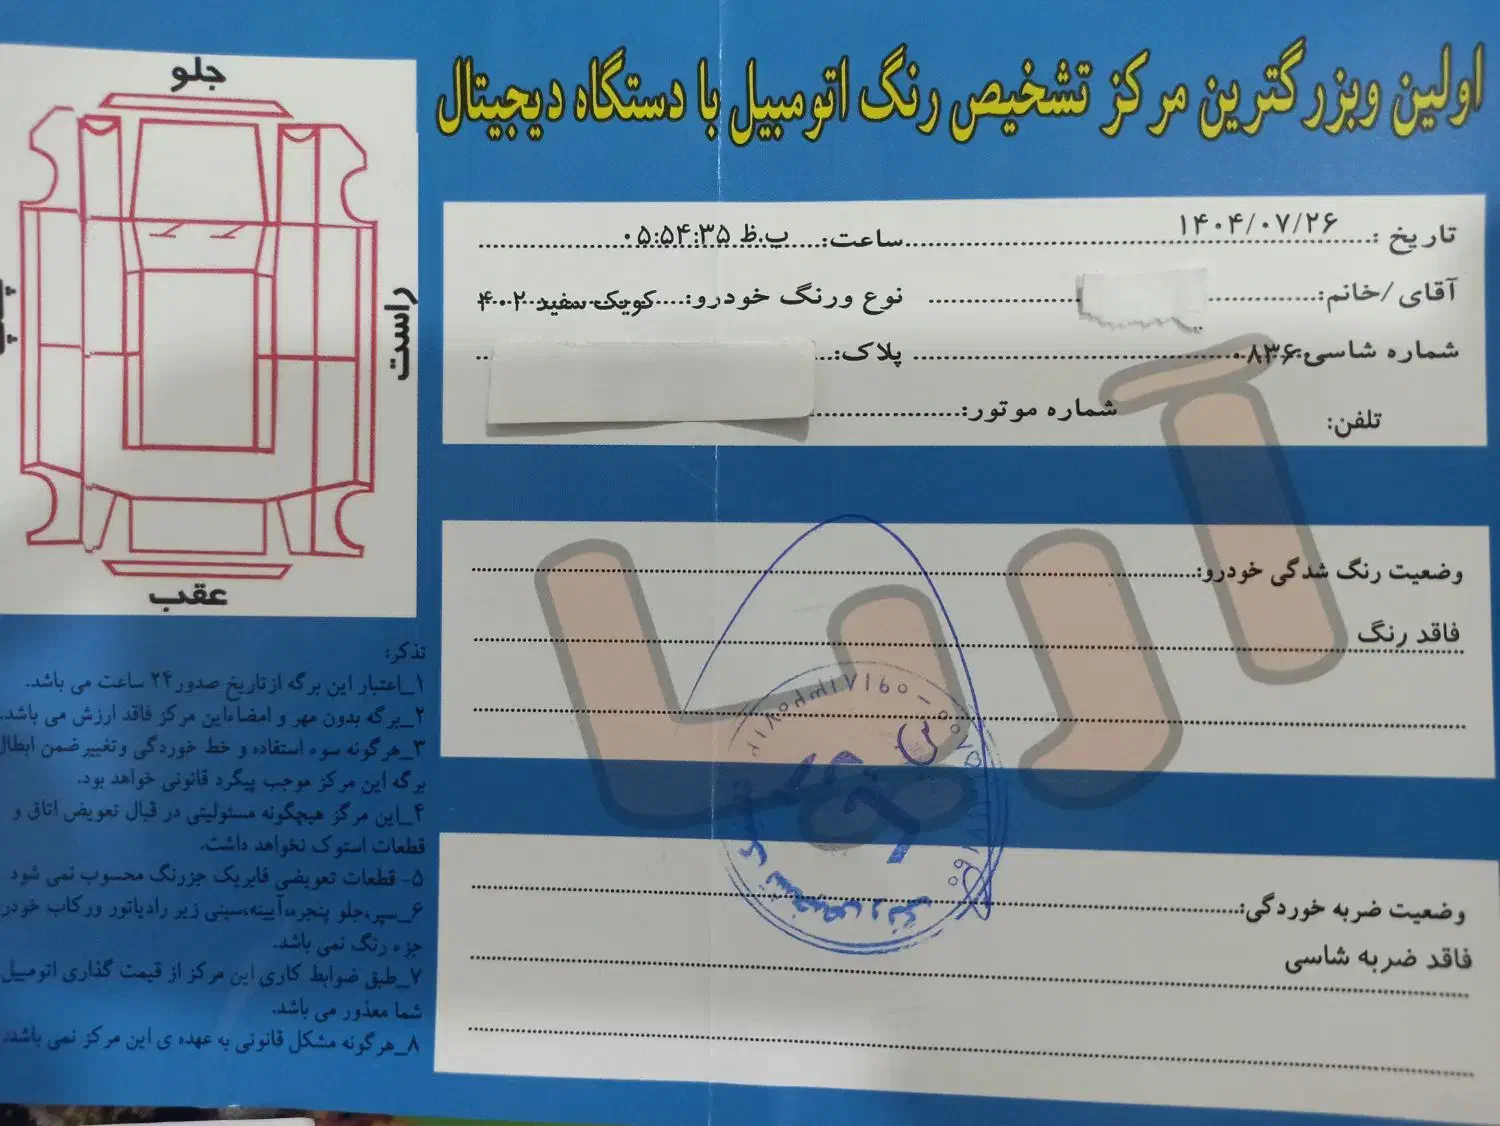 اولین وبزرگترین مرکز تشخیص رنگ اتومبیل با دستگاه دیجیتال
تاریخ: ۱۴۰۴/۰۷/۲۶ ساعت: ۰۵:۵۴:۳۵ ب.ظ
آقای/خانم: نوع ورنگ خودرو: کوییک سفید ۴۰۲
شماره شاسی: ۰۸۳۶ پلاک:
تلفن: شماره موتور:
وضعیت رنگ شدگی خودرو:
فاقد رنگ
وضعیت ضربه خوردگی:
فاقد ضربه شاسی
آریا
جلو
راست
چپ
عقب
تذکر:
۱_اعتبار این برگه ازتاریخ صدور ۲۴ ساعت می باشد.
۲_برگه بدون مهر و امضاءاین مرکز فاقد ارزش می باشد.
۳_هرگونه سوء استفاده و خط خوردگی وتغییرضمن ابطال
برگه این مرکز موجب پیگرد قانونی خواهد بود.
۴_این مرکز هیچگونه مسئولیتی در قبال تعویض اتاق و
قطعات استوک نخواهد داشت.
۵- قطعات تعویضی فابریک جزرنگ محسوب نمی شود
۶_سپر،جلو پنجره،آیینه،سینی زیر رادیاتور ورکاب خودرو
جزء رنگ نمی باشد.
۷_طبق ضوابط کاری این مرکز از قیمت گذاری اتومبیل
شما معذور می باشد.
۸_هرگونه مشکل قانونی به عهده ی این مرکز نمی باشد.